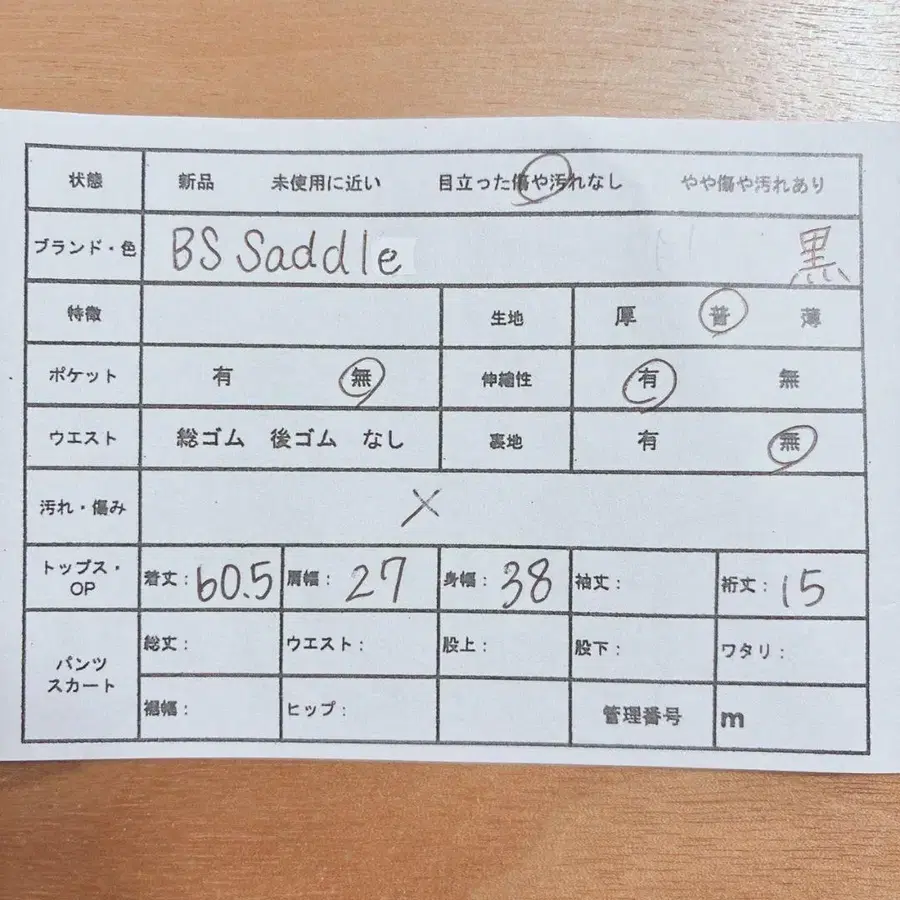 状態 新品 未使用に近い 目立った傷や汚れなし やや傷や汚れあり
ブランド・色 BS Saddle 黒
特徴 生地 厚 普 薄
ポケット 有 無 伸縮性 有 無
ウエスト 総ゴム 後ゴム なし 裏地 有 無
汚れ・傷み ×
トップス・OP 着丈: 60.5 肩幅: 27 身幅: 38 袖丈: 裄丈: 15
パンツ スカート 総丈: ウエスト: 股上: 股下: ワタリ:
裾幅: ヒップ: 管理番号 m